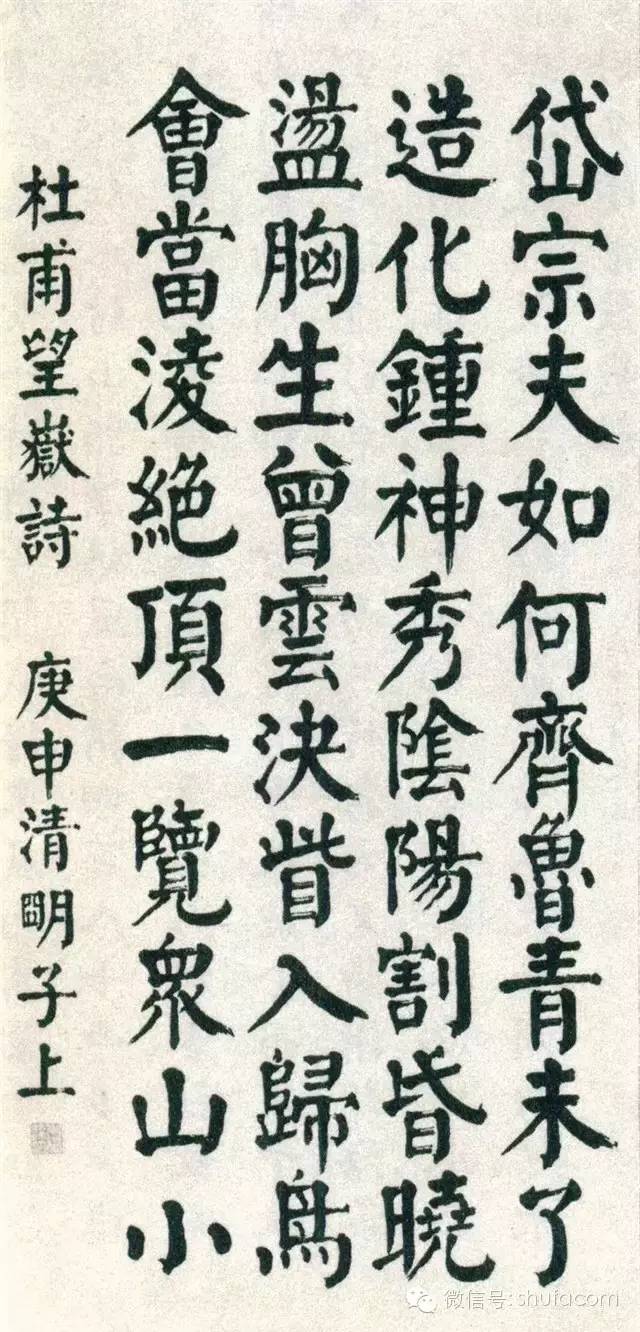 岱宗夫如何齊魯青未了
造化鍾神秀陰陽割昏曉
盪胸生曾雲決眥入歸鳥
會當淩絕頂一覽衆山小
杜甫望嶽詩 庚申清明子上
微信号: shufacom